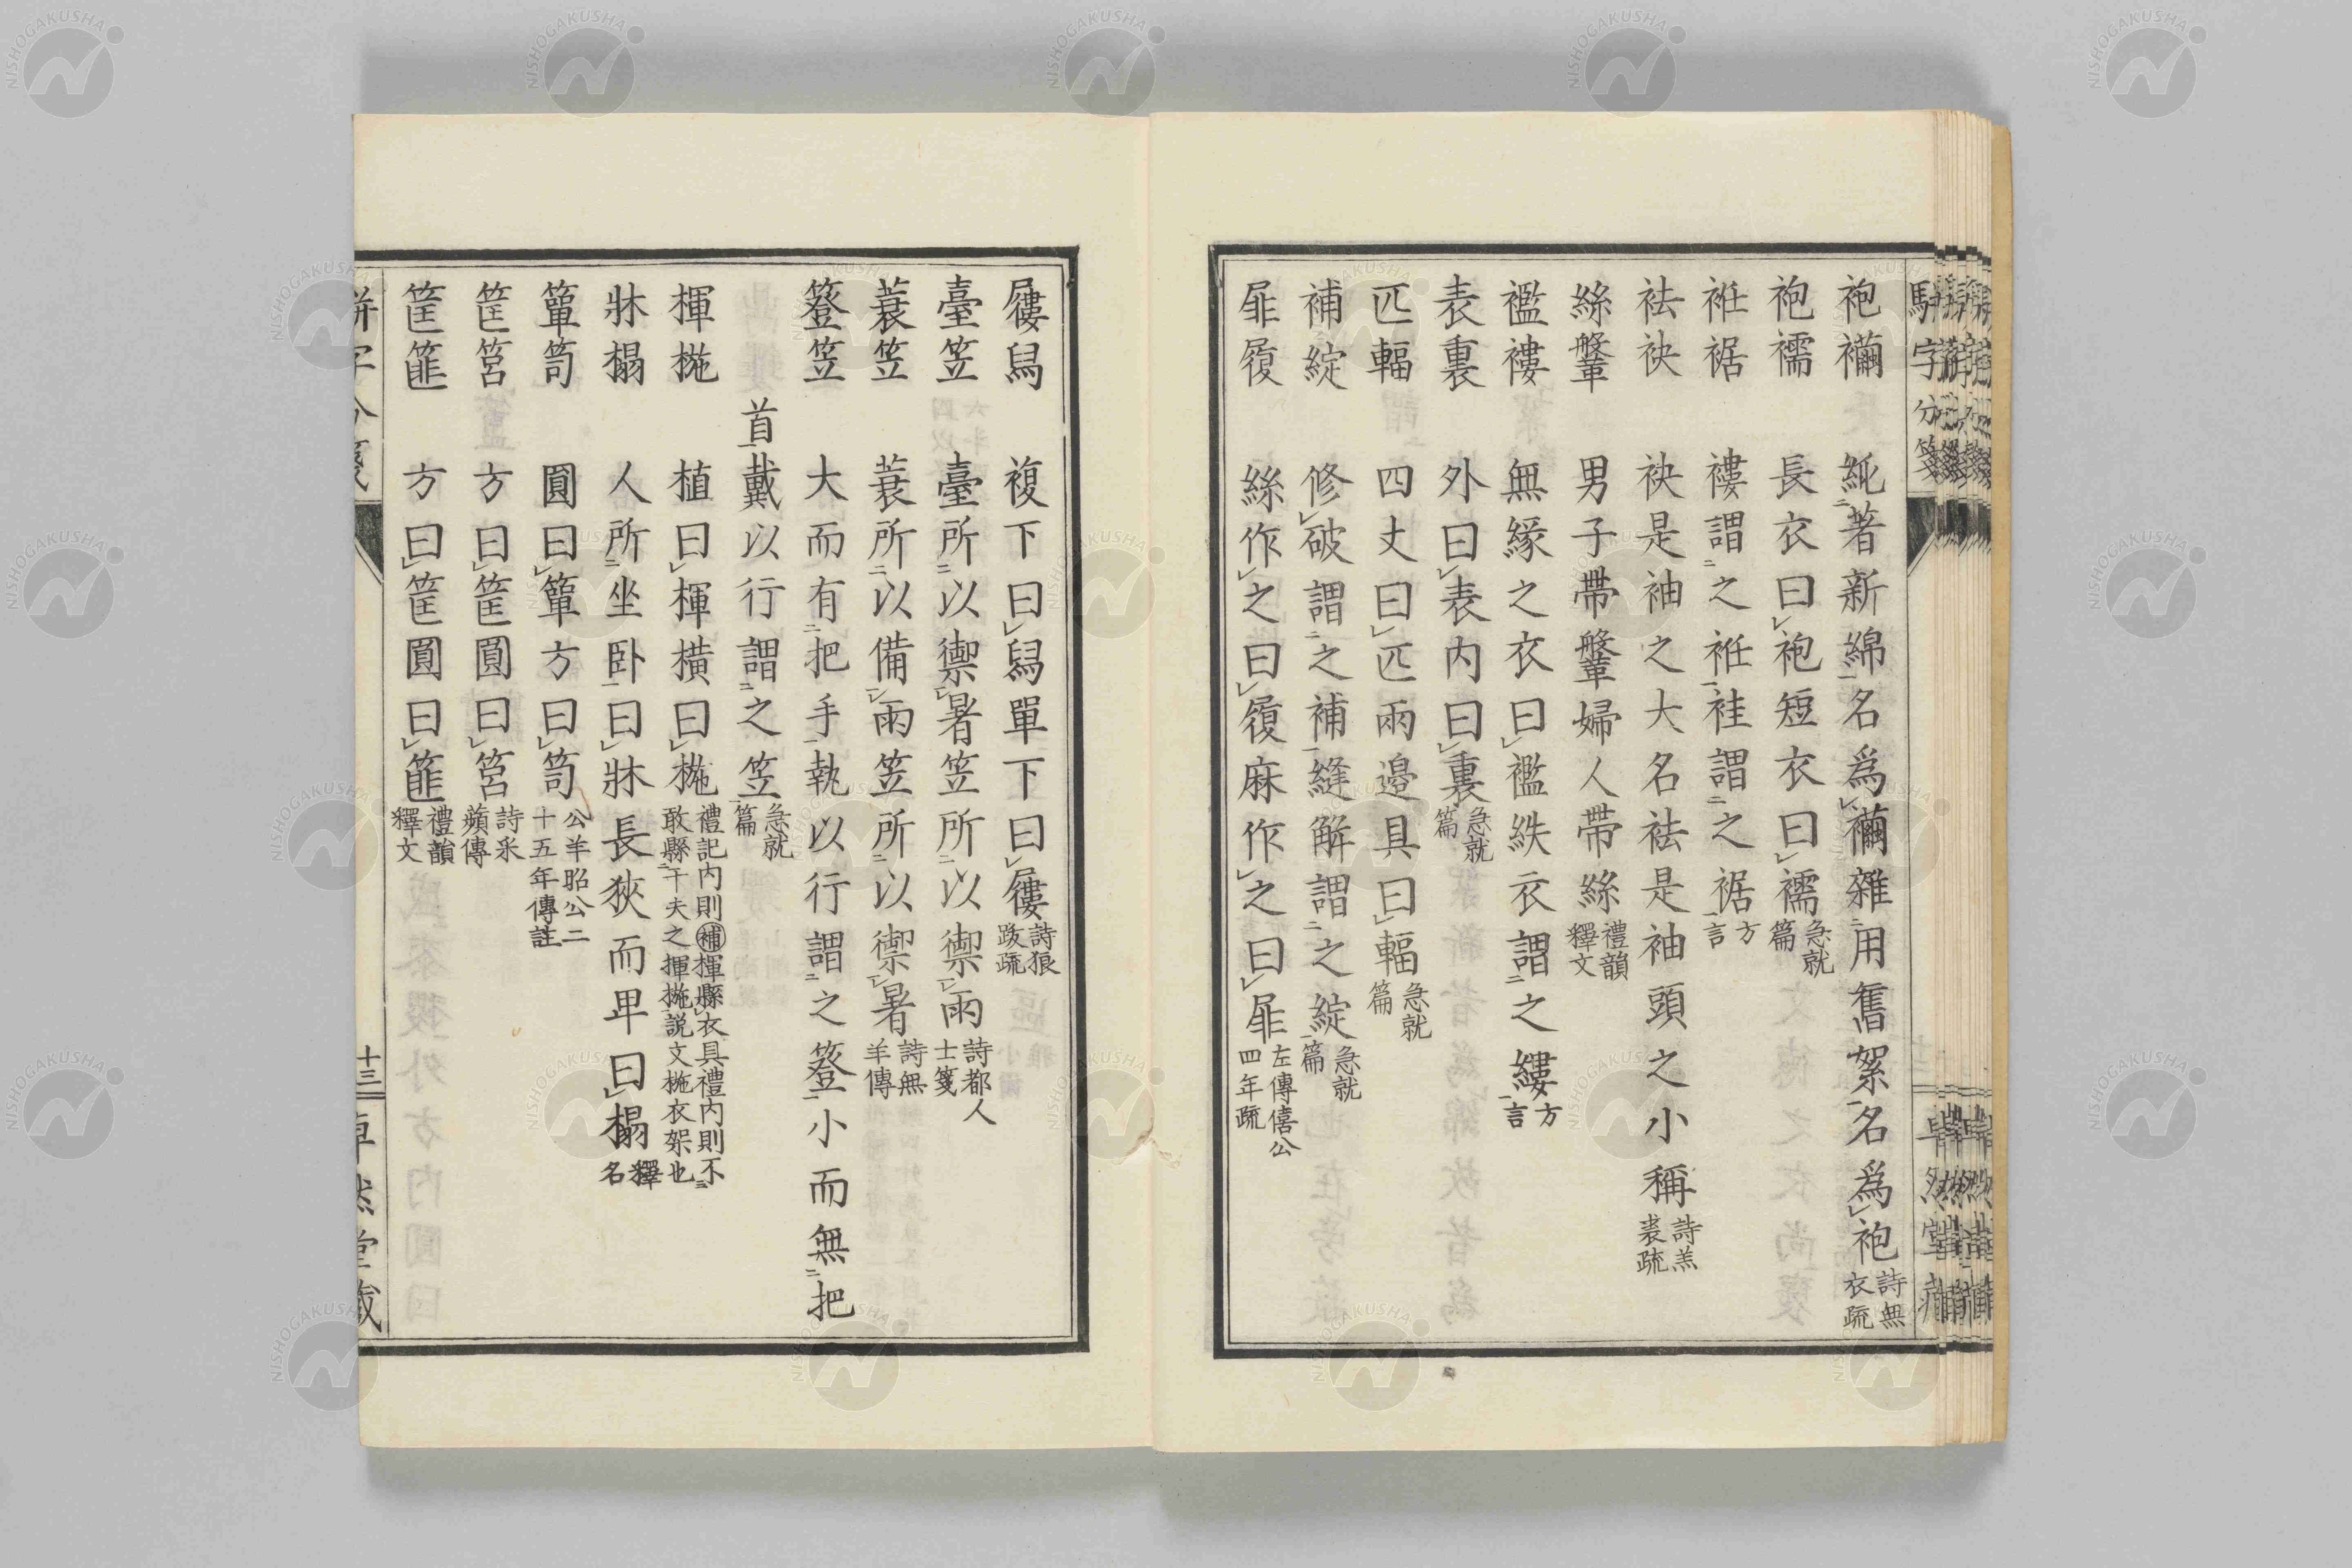 袍襺　純著新綿名爲襺雜用舊絮名爲袍詩無衣疏
袍襦　長衣曰袍短衣曰襦急就篇
袵裾　褸謂之袵袿謂之裾方言
袪袂　袂是袖之大名袪是袖頭之小稱詩羔裘疏
絲鞶　男子帶鞶婦人帶絲禮韻釋文
襤褸　無緣之衣曰襤紩衣謂之褸方言
表裏　外曰表內曰裏急就篇
匹輻　四丈曰匹兩邊具曰輻急就篇
補綻　修破謂之補縫解謂之綻急就篇
屝履　絲作之曰履麻作之曰屝左傳僖公四年疏
屨舄　複下曰舄單下曰屨詩狼跋疏
臺笠　臺所以禦暑笠所以禦雨詩都人士箋
蓑笠　蓑所以備雨笠所以禦暑詩無羊傳
簦笠　大而有把手執以行謂之簦小而無把
首戴以行謂之笠急就篇
楎椸　植曰楎橫曰椸禮記內則補楎縣衣具禮內則不敢縣于夫之楎椸說文椸衣架也
牀榻　人所坐臥曰牀長狹而卑曰榻釋名
簞笥　圓曰簞方曰笥公羊昭公二十五年傳註
筐筥　方曰筐圓曰筥詩采蘋傳
筐篚　方曰筐圓曰篚禮韻釋文
十三